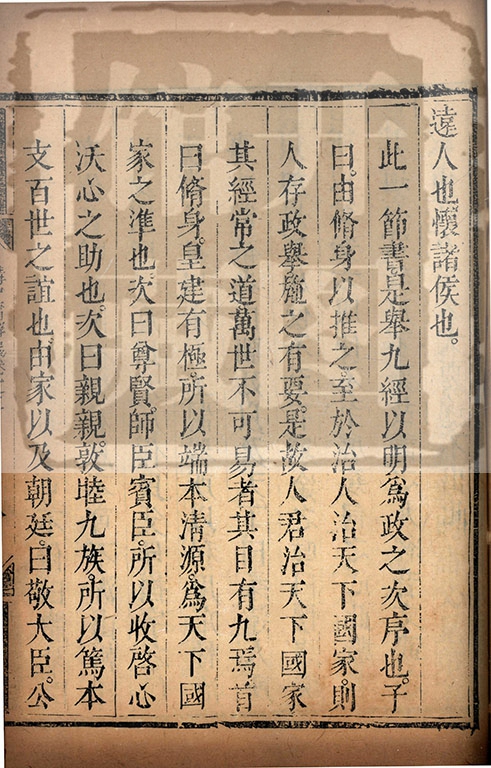 遠人也懷諸侯也。
此一節書是舉九經以明爲政之次序也。子
曰。由脩身以推之。至於治人治天下國家。則
人存政舉。施之有要。是故人君治天下國家
其經常之道萬世不可易者其目有九焉首
曰脩身。皇建有極。所以端本清源。爲天下國
家之準也。次曰尊賢。師臣賓臣。所以收啓心
沃心之助也。次曰親親。敦睦九族。所以篤本
支百世之誼也。由家以及朝廷。曰敬大臣。公